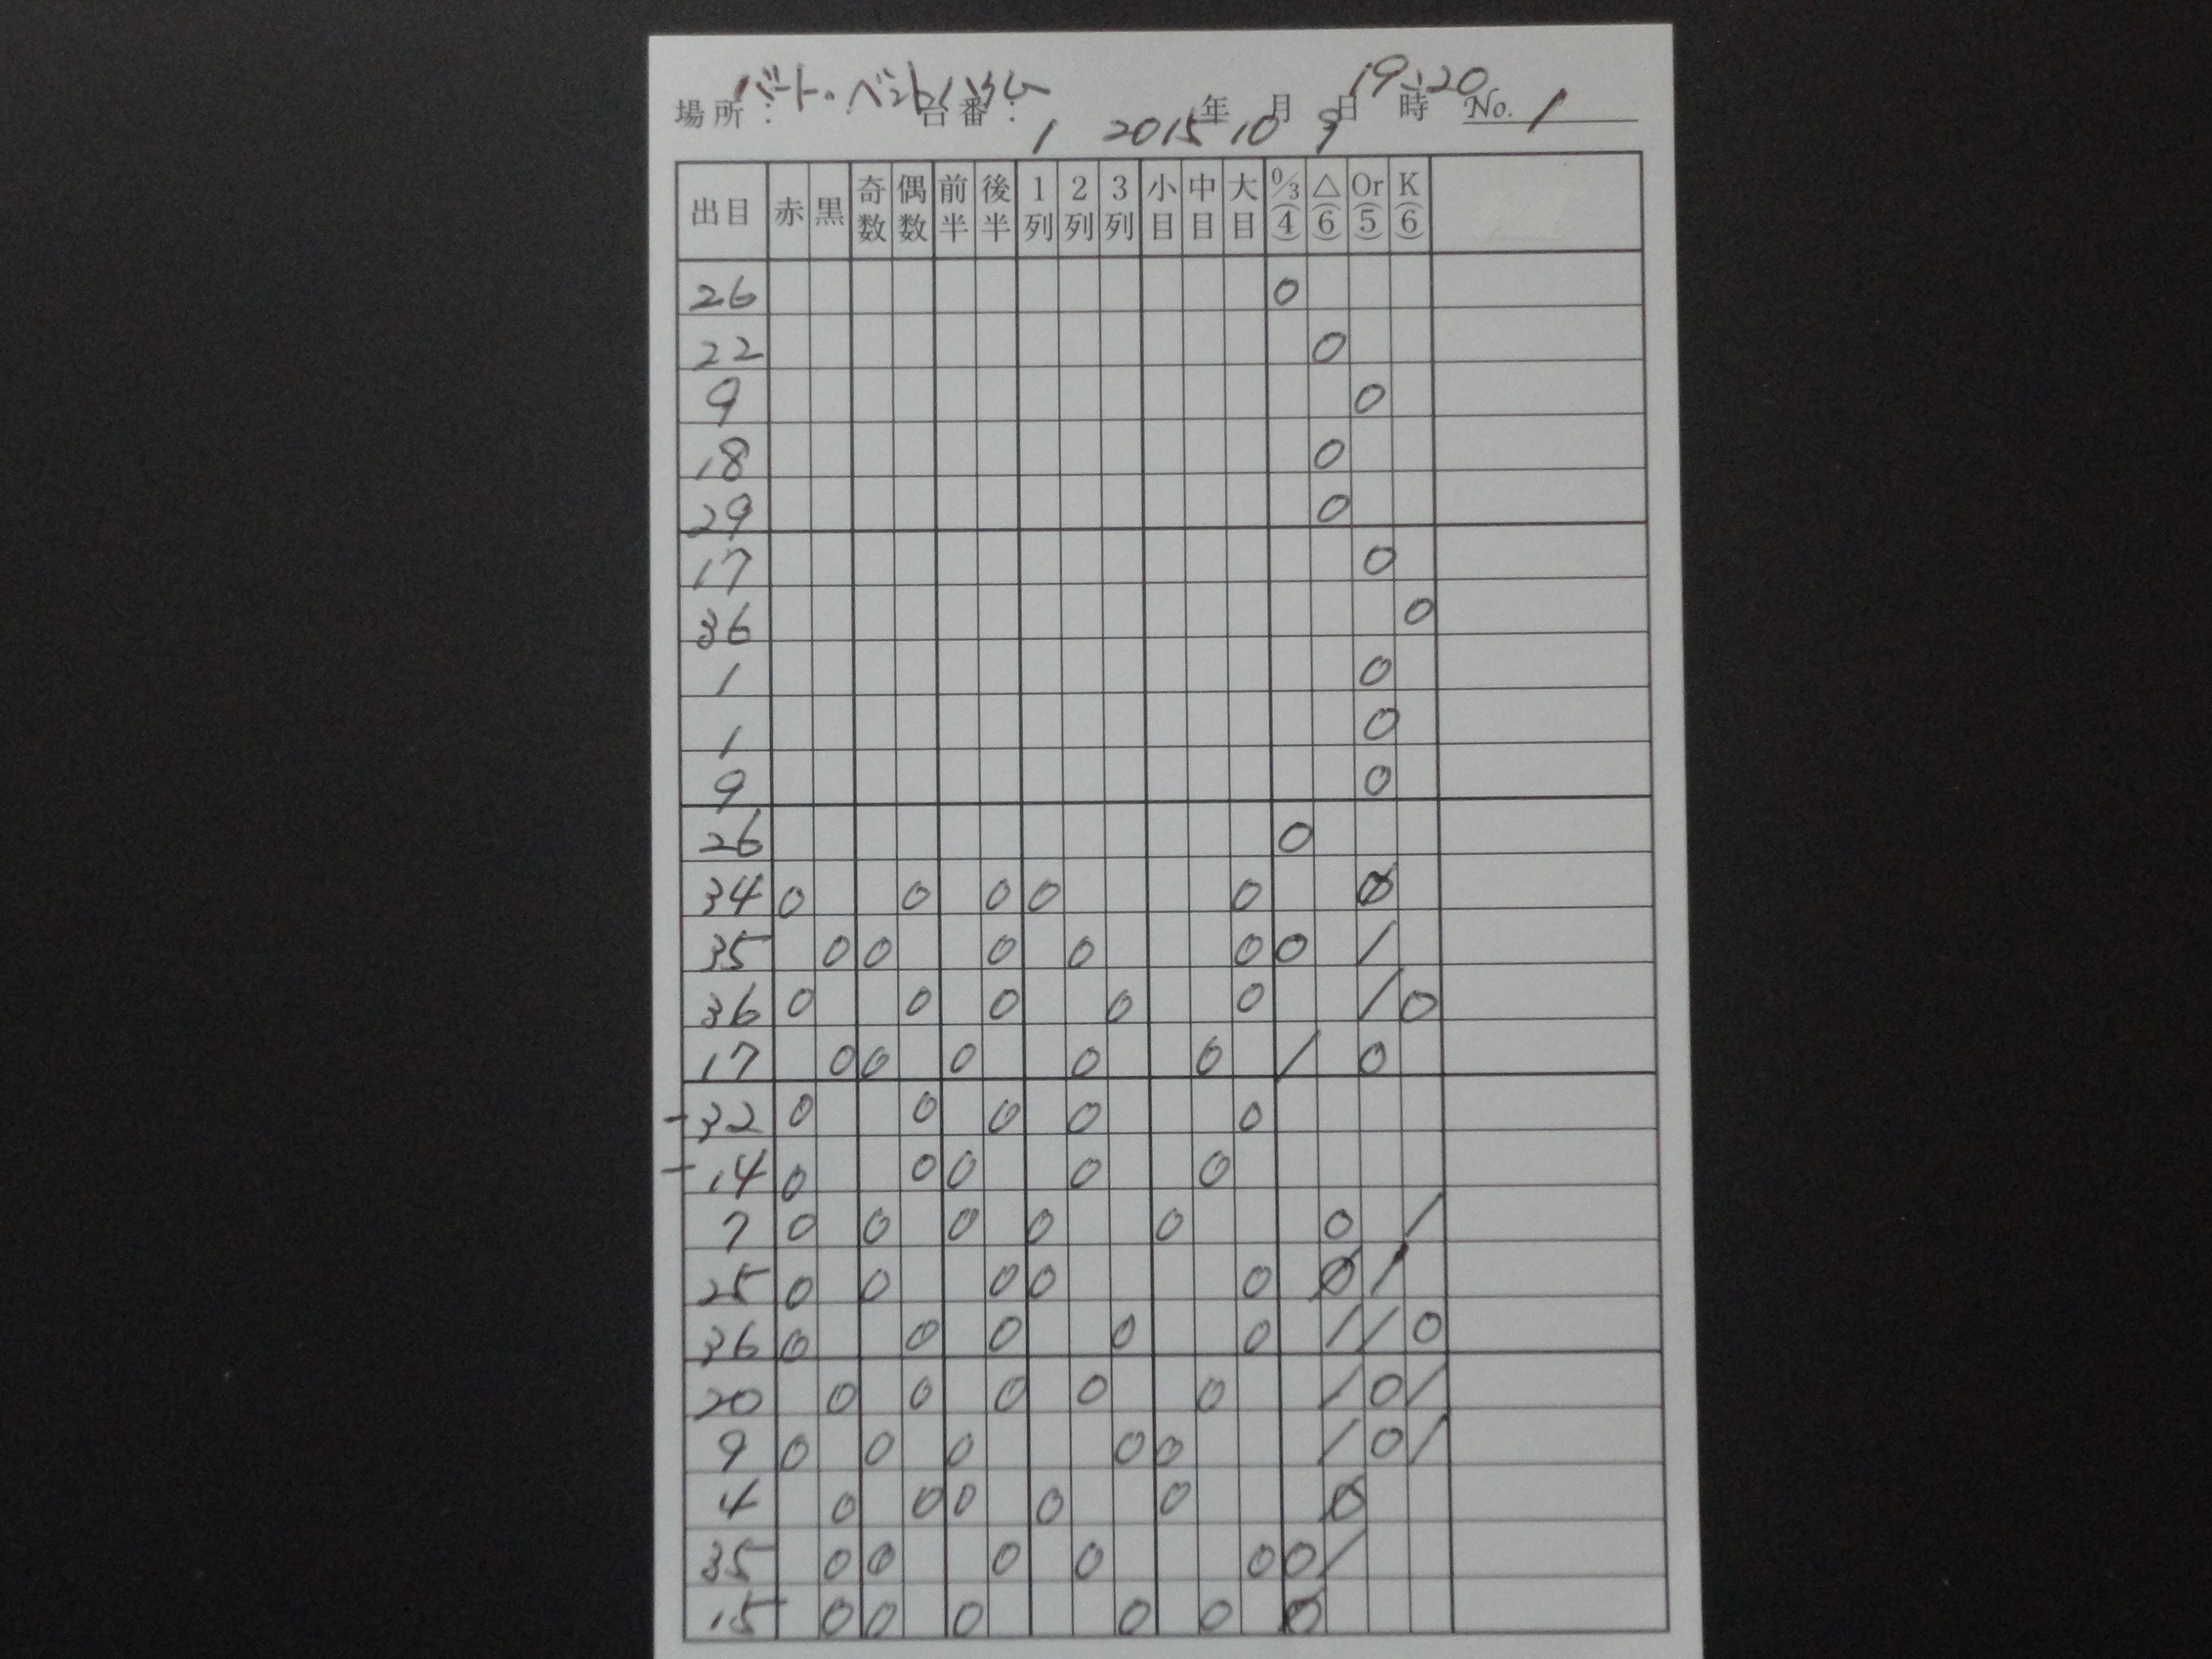 場所: バート・ベントハイム 台番: 1 2015年10月9日 19:20時 No. 1
出目 赤 黒 奇数 偶数 前半 後半 1列 2列 3列 小目 中目 大目 0/3(4) △(6) Or(5) K(6)
26 0
22 0
9 0
18 0
29 0
17 0
36 0
1 0
1 0
9 0
26 0
34 0 0 0 0 0 0
35 0 0 0 0 0 0 /
36 0 0 0 0 0 / 0
17 0 0 0 0 0 / 0
-32 0 0 0 0 0
-14 0 0 0 0 0
7 0 0 0 0 0 0 /
25 0 0 0 0 0 0 /
36 0 0 0 0 0 / / 0
20 0 0 0 0 0 / 0 /
9 0 0 0 0 0 / 0 /
4 0 0 0 0 0 0
35 0 0 0 0 0 0 /
15 0 0 0 0 0 0